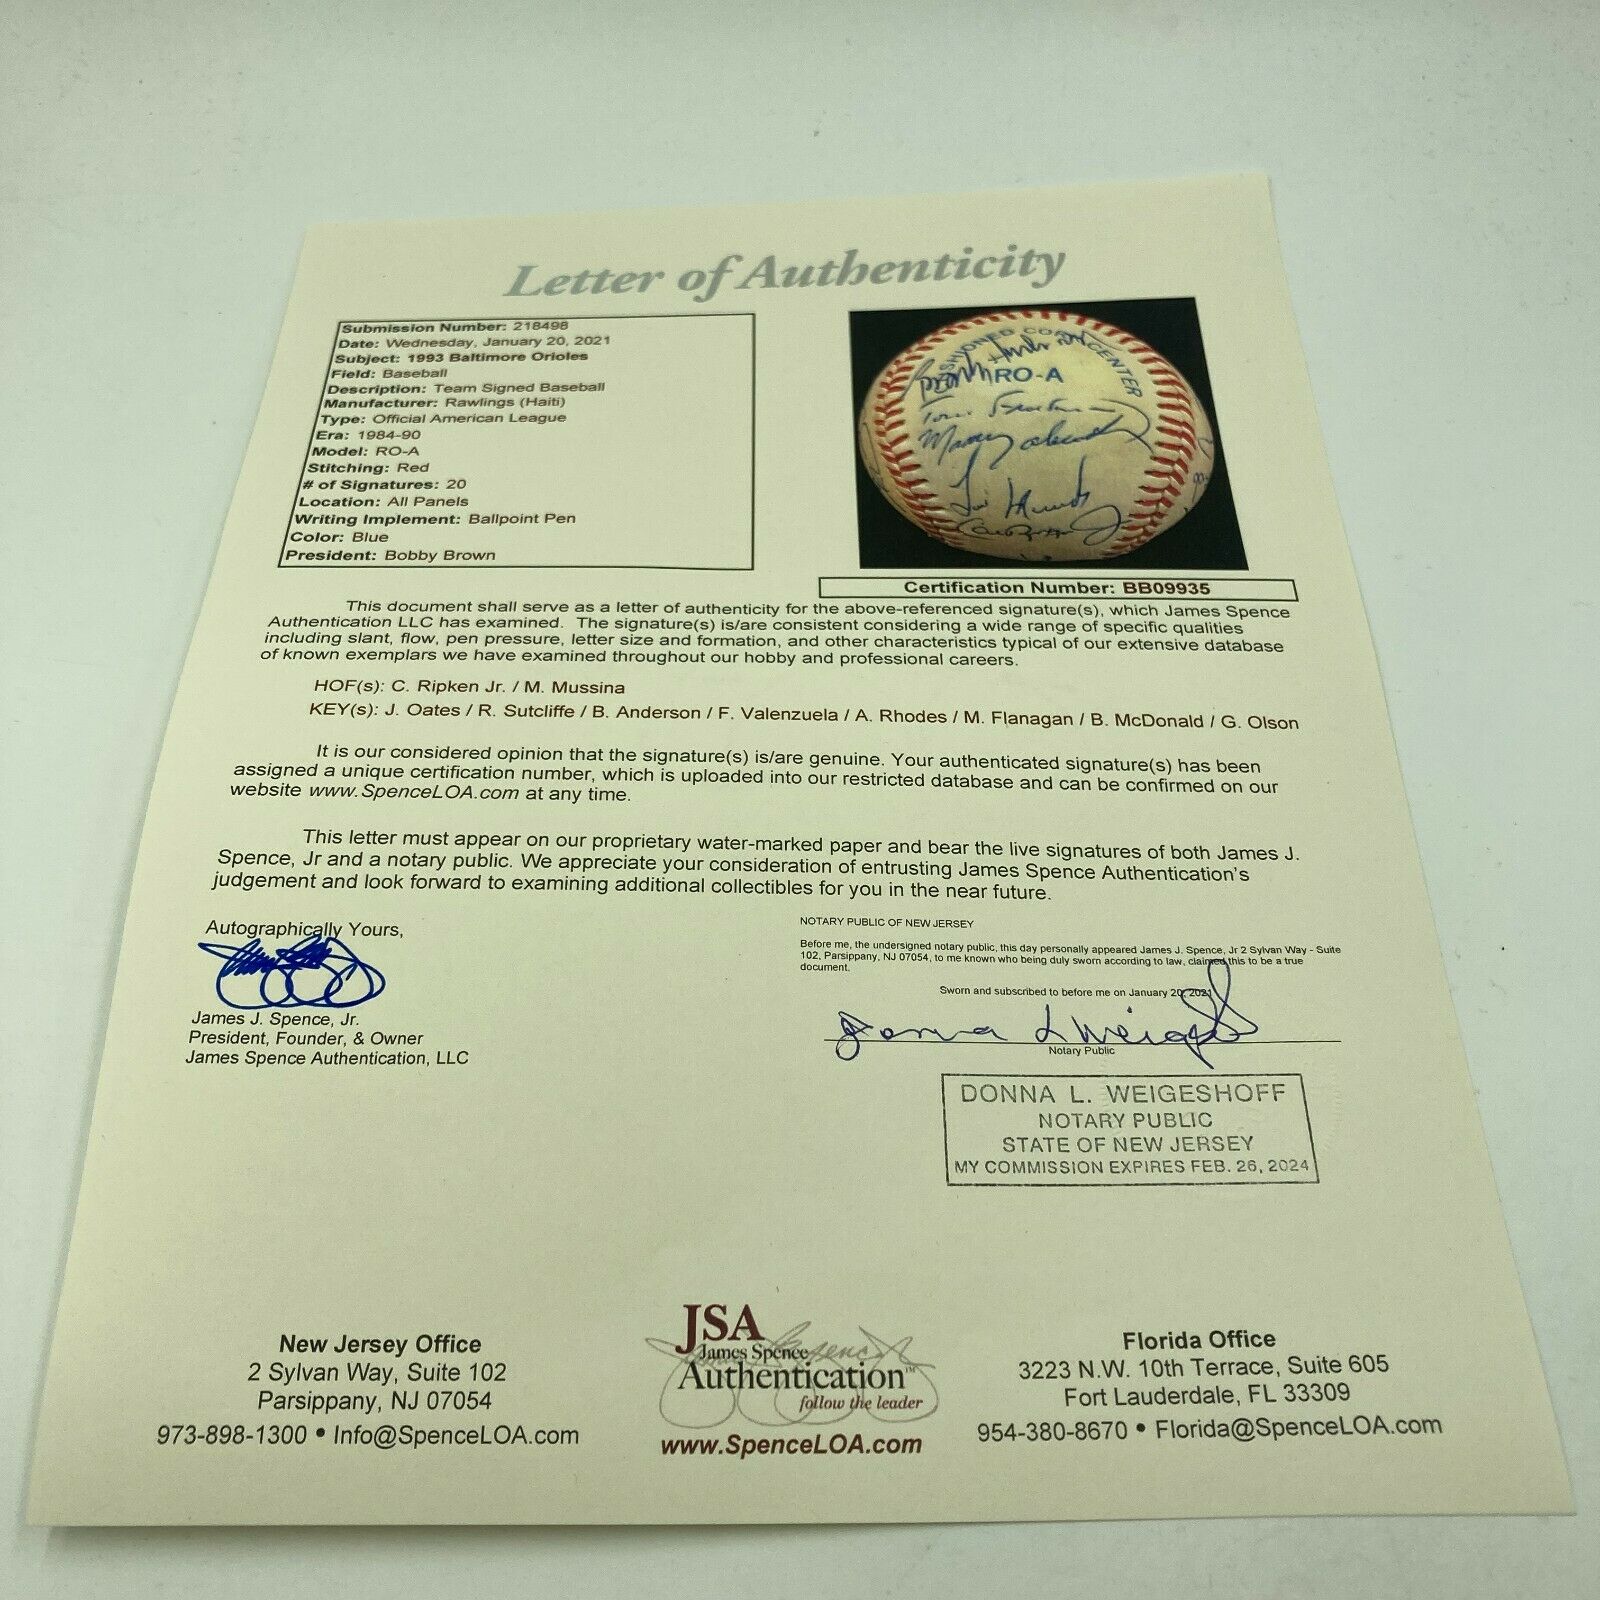 Letter of Authenticity
Submission Number: 218498
Date: Wednesday, January 20, 2021
Subject: 1993 Baltimore Orioles
Field: Baseball
Description: Team Signed Baseball
Manufacturer: Rawlings (Haiti)
Type: Official American League
Era: 1984-90
Model: RO-A
Stitching: Red
# of Signatures: 20
Location: All Panels
Writing Implement: Ballpoint Pen
Color: Blue
President: Bobby Brown
CENTER
RO-A
Certification Number: BB09935
This document shall serve as a letter of authenticity for the above-referenced signature(s), which James Spence
Authentication LLC has examined. The signature(s) is/are consistent considering a wide range of specific qualities
including slant, flow, pen pressure, letter size and formation, and other characteristics typical of our extensive database
of known exemplars we have examined throughout our hobby and professional careers.
HOF(s): C. Ripken Jr. / M. Mussina
KEY(s): J. Oates / R. Sutcliffe / B. Anderson / F. Valenzuela / A. Rhodes / M. Flanagan / B. McDonald / G. Olson
It is our considered opinion that the signature(s) is/are genuine. Your authenticated signature(s) has been
assigned a unique certification number, which is uploaded into our restricted database and can be confirmed on our
website www.SpenceLOA.com at any time.
This letter must appear on our proprietary water-marked paper and bear the live signatures of both James J.
Spence, Jr and a notary public. We appreciate your consideration of entrusting James Spence Authentication's
judgement and look forward to examining additional collectibles for you in the near future.
Autographically Yours,
James J. Spence, Jr.
President, Founder, & Owner
James Spence Authentication, LLC
NOTARY PUBLIC OF NEW JERSEY
Before me, the undersigned notary public, this day personally appeared James J. Spence, Jr 2 Sylvan Way - Suite
102, Parsippany, NJ 07054, to me known who being duly sworn according to law, claimed this to be a true
document.
Sworn and subscribed to before me on January 20, 2021
Donna L Weigeshoff
Notary Public
DONNA L. WEIGESHOFF
NOTARY PUBLIC
STATE OF NEW JERSEY
MY COMMISSION EXPIRES FEB. 26, 2024
New Jersey Office
2 Sylvan Way, Suite 102
Parsippany, NJ 07054
973-898-1300 • Info@SpenceLOA.com
JSA
James Spence
Authentication™
follow the leader
www.SpenceLOA.com
Florida Office
3223 N.W. 10th Terrace, Suite 605
Fort Lauderdale, FL 33309
954-380-8670 • Florida@SpenceLOA.com